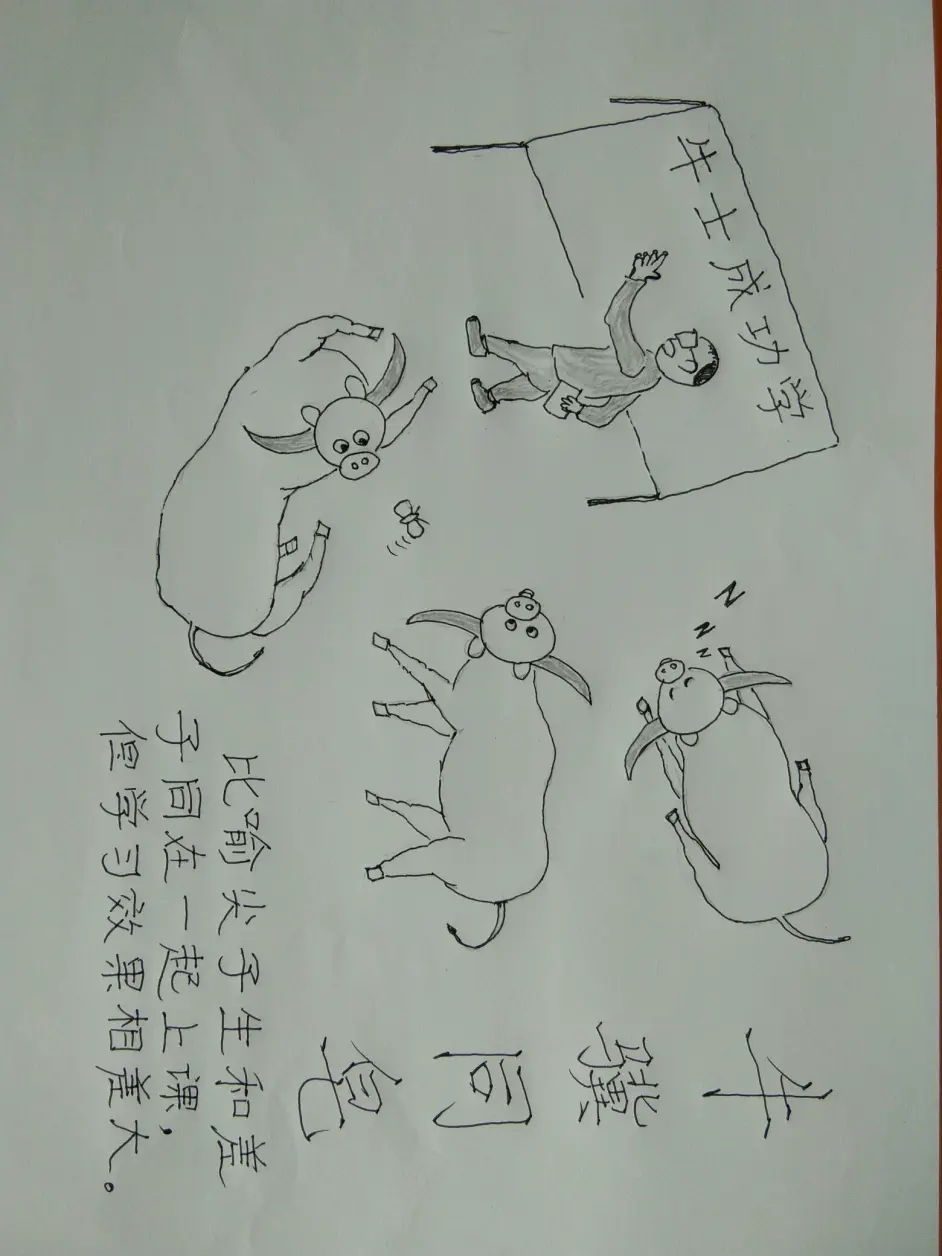 牛士成功学
Z Z Z
牛骥同皂
比喻尖子生和差
子同在一起上课，
但学习效果相差大。